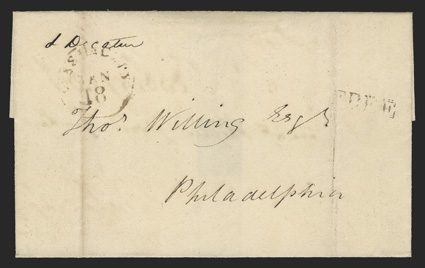 S Decatur
WASH. CITY
JAN
18
FREE
Thos. Willing Esqr
Philadelphia